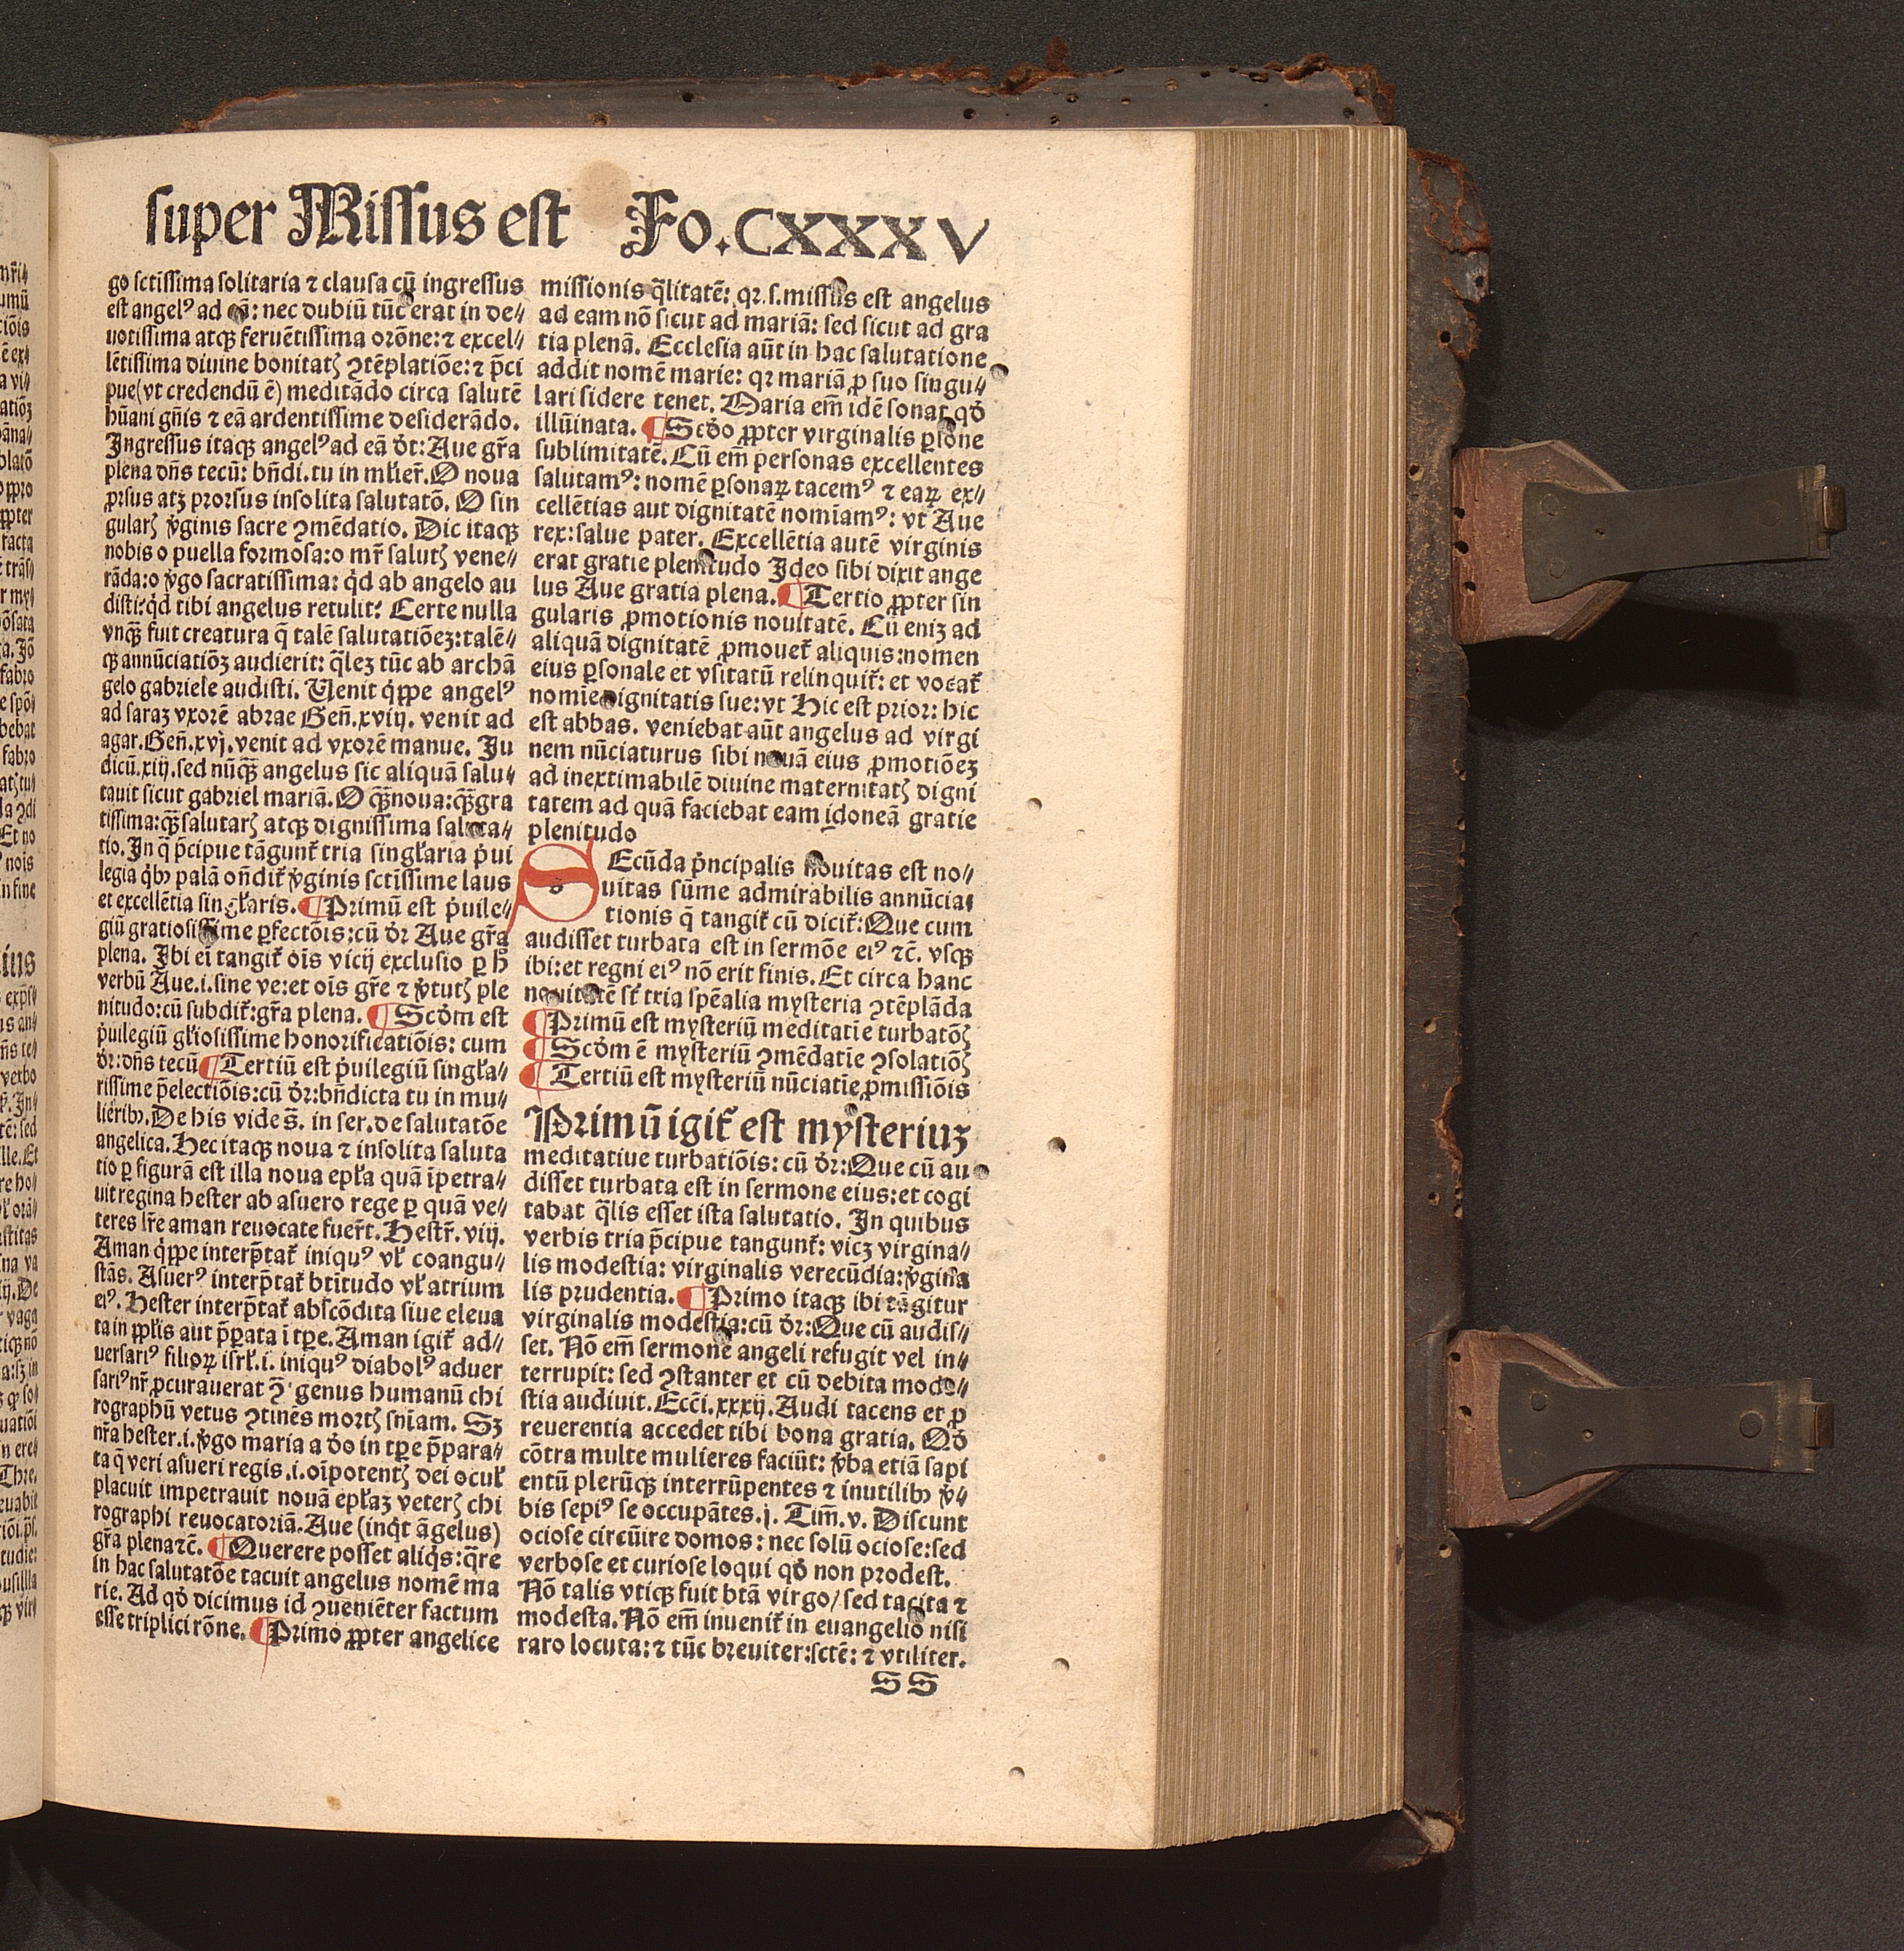 super Missus est Fo.CXXXV
go sctissima solitaria ⁊ clausa cũ ingressus
est angelꝰ ad eã: nec dubiũ tũc erat in de⸗
uotissima atqꝫ feruẽtissima orõne: ⁊ excel⸗
lẽtissima diuine bonitatꝭ ꝯtẽplatiõe: ⁊ p̃ci
pue (vt credendũ ẽ) meditãdo circa salutẽ
hũani gñis ⁊ eã ardentissime desiderãdo.
Ingressus itaqꝫ angelꝰ ad eã dt: Aue gr̃a
plena dñs tecũ: bñdi. tu in mĺier̃. O noua
ꝓrsus atꝫ prorsus insolita salutatõ. O sin
gularꝭ v̇ginis sacre ꝯmẽdatio. Dic itaqꝫ
nobis o puella formosa: o mr̃ salutꝭ vene⸗
rãda: o v̇go sacratissima: qd ab angelo au
disti? qd tibi angelus retulit? Certe nulla
vnqꝫ̃ fuit creatura q̃ talẽ salutatiõeꝫ: talẽ⸗
qꝫ annũciatiõꝫ audierit: q̃leꝫ tũc ab archã
gelo gabriele audisti. Uenit q̇ppe angelꝰ
ad saraꝫ vxorẽ abrae Geñ. xviij. venit ad
agar. Geñ. xvj. venit ad vxorẽ manue. Ju
dicũ. xiij. sed nũqꝫ̃ angelus sic aliquã salu⸗
tauit sicut gabriel mariã. O qꝫ̃ noua: qꝫ̃ gra
tissima: qꝫ̃ salutarꝭ atqꝫ dignissima saluta⸗
tio. In q̃ p̃cipue tãgunt̃ tria singĺaria ṗui
legia qḃꝫ palã oñdit̃ v̇ginis sctissime laus
et excellẽtia singĺaris. ¶ Primũ est ṗuile⸗
giũ gratiosissime ꝑfectõis: cũ dr̃ Aue gr̃a
plena. Ibi eĩ tangit̃ oĩs vicij exclusio ꝑ h̃
verbũ Aue. i. sine ve: et oĩs gr̃e ⁊ v̇tutꝭ ple
nitudo: cũ subdit̃: gr̃a plena. ¶ Scdm est
ṗuilegiũ gĺiosissime honorificatiõis: cum
dr̃: dñs tecũ ¶ Tertiũ est ṗuilegiũ singĺa⸗
rissime p̃electiõis: cũ dr̃: bñdicta tu in mu⸗
lieribꝫ. De his vide s̃. in ser. de salutatõe
angelica. Hec itaqꝫ noua ⁊ insolita saluta
tio ꝑ figurã est illa noua epĺa quã ĩpetra⸗
uit regina hester ab asuero rege ꝑ quã ve⸗
teres lr̃e aman reuocate fuer̃t. Hestr̃. viij.
Aman q̇ppe interp̃tat̃ iniquꝰ vĺ coangu⸗
stãs. Asuerꝰ interp̃tat̃ btĩtudo vĺ atrium
eiꝰ. Hester interp̃tat̃ abscõdita siue eleua
ta in ppĺis aut p̃parata ĩ tꝑe. Aman igit̃ ad⸗
uersariꝰ filioꝝ isrĺ. i. iniquꝰ diabolꝰ aduer
sariꝰ nr̃ ꝓcurauerat ꝯ̃ genus humanũ chi
rographũ vetus ꝯtinẽs mortꝭ snĩam. Sꝫ
nr̃a hester. i. v̇go maria a deo in tꝑe p̃para⸗
ta q̃ veri asueri regis. i. oĩpotentꝭ dei ocuĺ
placuit impetrauit nouã epĺaꝫ veterꝭ chi
rographi reuocatoriã. Aue (inq̇t ãgelus)
gr̃a plena ⁊c̃. ¶ Querere posset aliq̇s: q̃re
in hac salutatõe tacuit angelus nomẽ ma
rie. Ad qḋ dicimus id ꝯueniẽter factum
esse triplici rõne. ¶ Primo ꝓpter angelice
missionis q̃litatẽ: qꝛ. s. missus est angelus
ad eam nõ sicut ad mariã: sed sicut ad gra
tia plenã. Ecclesia aũt in hac salutatione
addit nomẽ marie: qꝛ mariã ꝓ suo singu⸗
lari sidere tenet. Maria em̃ idẽ sonat qḋ
illũinata. ¶ Scdo ꝓpter virginalis ꝑsone
sublimitatẽ. Cũ em̃ personas excellentes
salutamꝰ: nomẽ ꝑsonaꝝ tacemꝰ ⁊ eaꝝ ex⸗
cellẽtias aut dignitatẽ nomĩamꝰ: vt Aue
rex: salue pater. Excellẽtia autẽ virginis
erat gratie plenitudo Ideo sibi dixit ange
lus Aue gratia plena. ¶ Tertio ꝓpter sin
gularis ꝓmotionis nouitatẽ. Cũ eniꝫ ad
aliquã dignitatẽ ꝓmouet̃ aliquis: nomen
eius ꝑsonale et vsitatũ relinquit̃: et vocat̃
nomĩe dignitatis sue: vt Hic est prior: hic
est abbas. veniebat aũt angelus ad virgi
nem nũciaturus sibi nouã eius ꝓmotiõeꝫ
ad inextimabilẽ diuine maternitatꝭ digni
tatem ad quã faciebat eam idoneã gratie
plenitudo
SEcũda ṗncipalis nouitas est no⸗
uitas sũme admirabilis annũcia⸗
tionis q̃ tangit̃ cũ dicit̃: Que cum
audisset turbata est in sermõe eiꝰ ⁊c̃. vsqꝫ
ibi: et regni eiꝰ nõ erit finis. Et circa hanc
nouitatẽ st̃ tria spẽalia mysteria ꝯtẽplãda
¶ Primũ est mysteriũ meditatĩe turbatõꝭ
¶ Scdm ẽ mysteriũ ꝯmẽdatĩe ꝯsolatiõꝭ
¶ Tertiũ est mysteriũ nũciatĩe ꝓmissiõis
Primũ igit̃ est mysteriuꝫ
meditatiue turbatiõis: cũ dr̃: Que cũ au
disset turbata est in sermone eius: et cogi
tabat q̃lis esset ista salutatio. In quibus
verbis tria p̃cipue tangunt̃: vicꝫ virgina⸗
lis modestia: virginalis verecũdia: v̇gina
lis prudentia. ¶ Primo itaqꝫ ibi tãgitur
virginalis modestia: cũ dr̃: Que cũ audis⸗
set. Nõ em̃ sermone angeli refugit vel in⸗
terrupit: sed ꝯstanter et cũ debita mode⸗
stia audiuit. Ecci. xxxij. Audi tacens et ꝓ
reuerentia accedet tibi bona gratia. Qḋ
cõtra multe mulieres faciũt: v̇ba etiã sapi
entũ plerũqꝫ interrũpentes ⁊ inutilibꝫ v̇⸗
bis sepiꝰ se occupãtes. j. Tim̃. v. Discunt
ociose circũire domos: nec solũ ociose: sed
verbose et curiose loqui qḋ non prodest.
Nõ talis vtiqꝫ fuit btã virgo / sed tacita ⁊
modesta. Nõ em̃ inuenit̃ in euangelio nisi
raro locuta: ⁊ tũc breuiter: sctẽ: ⁊ vtiliter.
SS